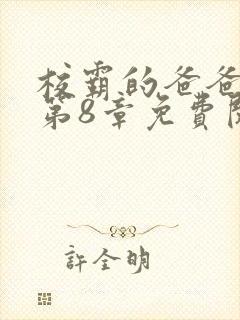 校霸的爸爸
第8章免費
許全明